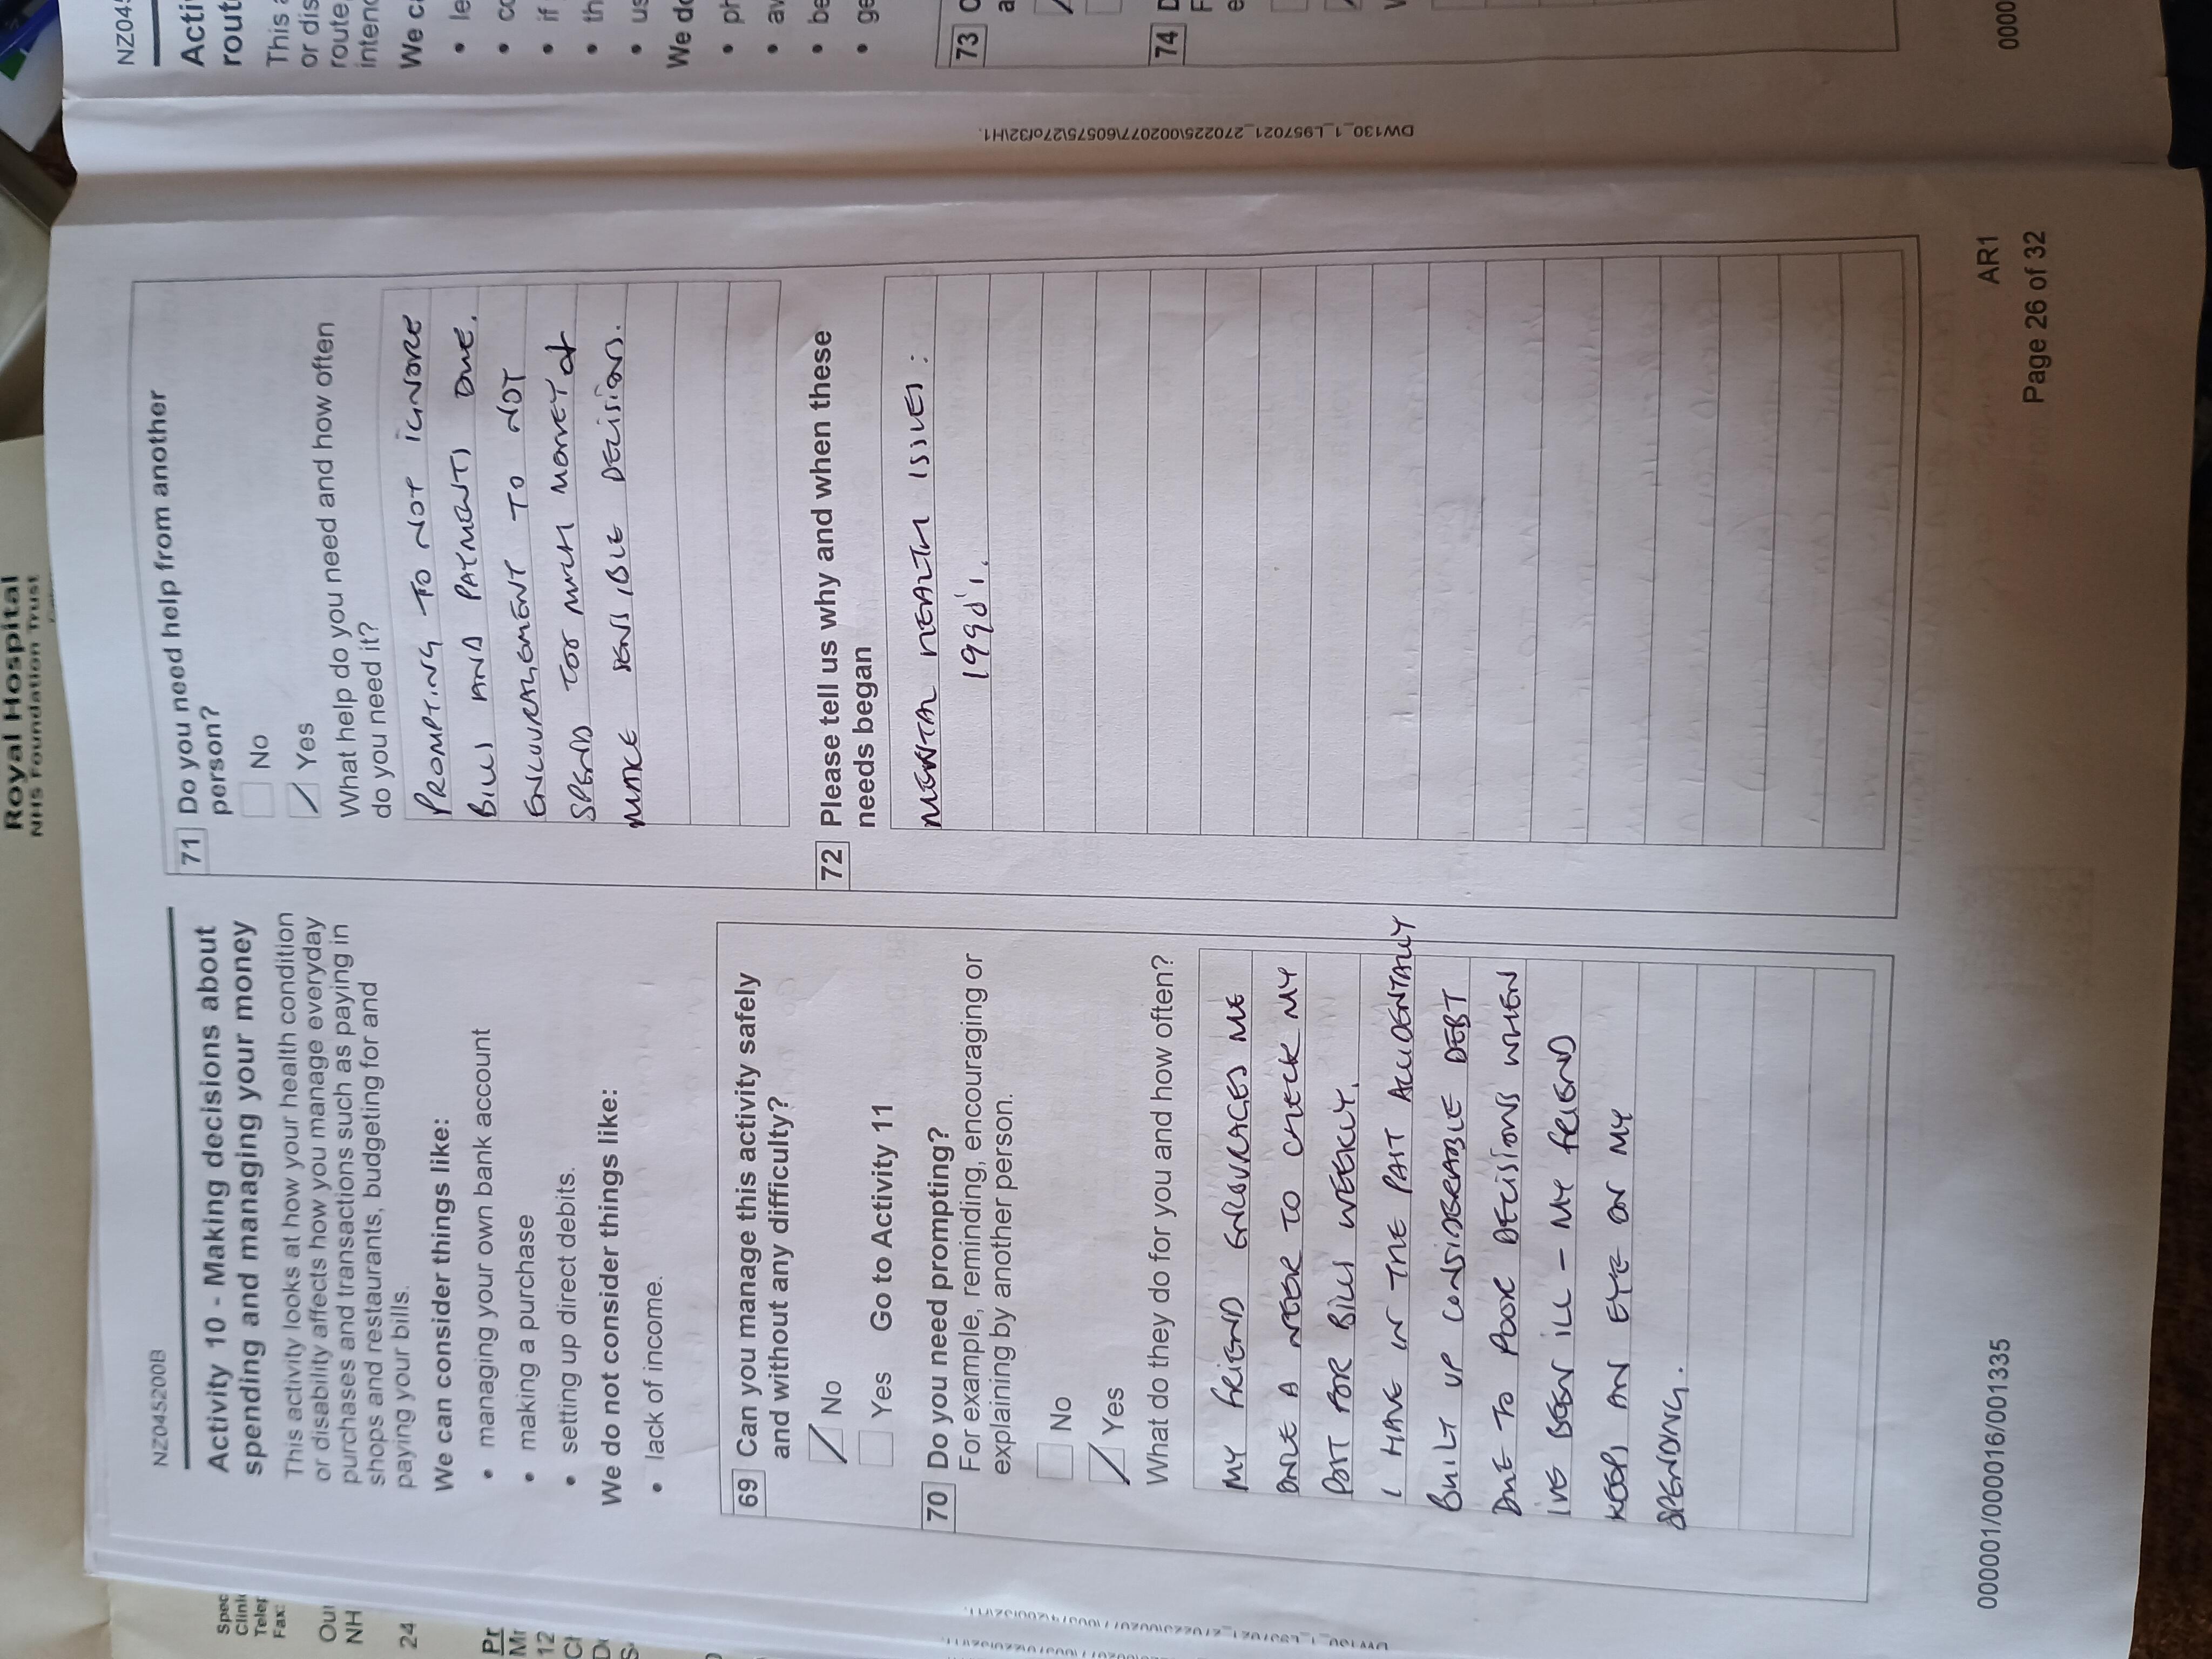 Royal Hospital
NHS Foundation Trust
NZ045200B
Activity 10 - Making decisions about
spending and managing your money
This activity looks at how your health condition
or disability affects how you manage everyday
purchases and transactions such as paying in
shops and restaurants, budgeting for and
paying your bills.
We can consider things like:
• managing your own bank account
• making a purchase
• setting up direct debits.
We do not consider things like:
• lack of income.
69 Can you manage this activity safely
and without any difficulty?
No
Yes Go to Activity 11
70 Do you need prompting?
For example, reminding, encouraging or
explaining by another person.
No
Yes
What do they do for you and how often?
MY FRIEND ENCOURAGES ME
ONCE A WEEK TO CHECK MY
POST FOR BILLS WEEKLY.
I HAVE IN THE PAST ACCIDENTALLY
BUILT UP CONSIDERABLE DEBT
DUE TO POOR DECISIONS WHEN
IVE BEEN ILL - MY FRIEND
KEEPS AN EYE ON MY
SPENDING.
71 Do you need help from another
person?
No
Yes
What help do you need and how often
do you need it?
PROMPTING TO NOT IGNORE
BILLS AND PAYMENTS DUE.
ENCOURAGEMENT TO NOT
SPEND TOO MUCH MONEY &
MAKE SENSIBLE DECISIONS.
72 Please tell us why and when these
needs began
MENTAL HEALTH ISSUES:
1990's.
000001/000016/001335
AR1
Page 26 of 32
DW130_1_L957021_270225\002077\60575\27of32\H1.
NZ045
Activ
rout
This a
or dis
route,
intend
We ca
• le
• co
• if
• th
• us
We do
• ph
• av
• be
• ge
73
74
0000
Spec
Clini
Telep
Fax:
Our
NH
24
Pr
Mr
12